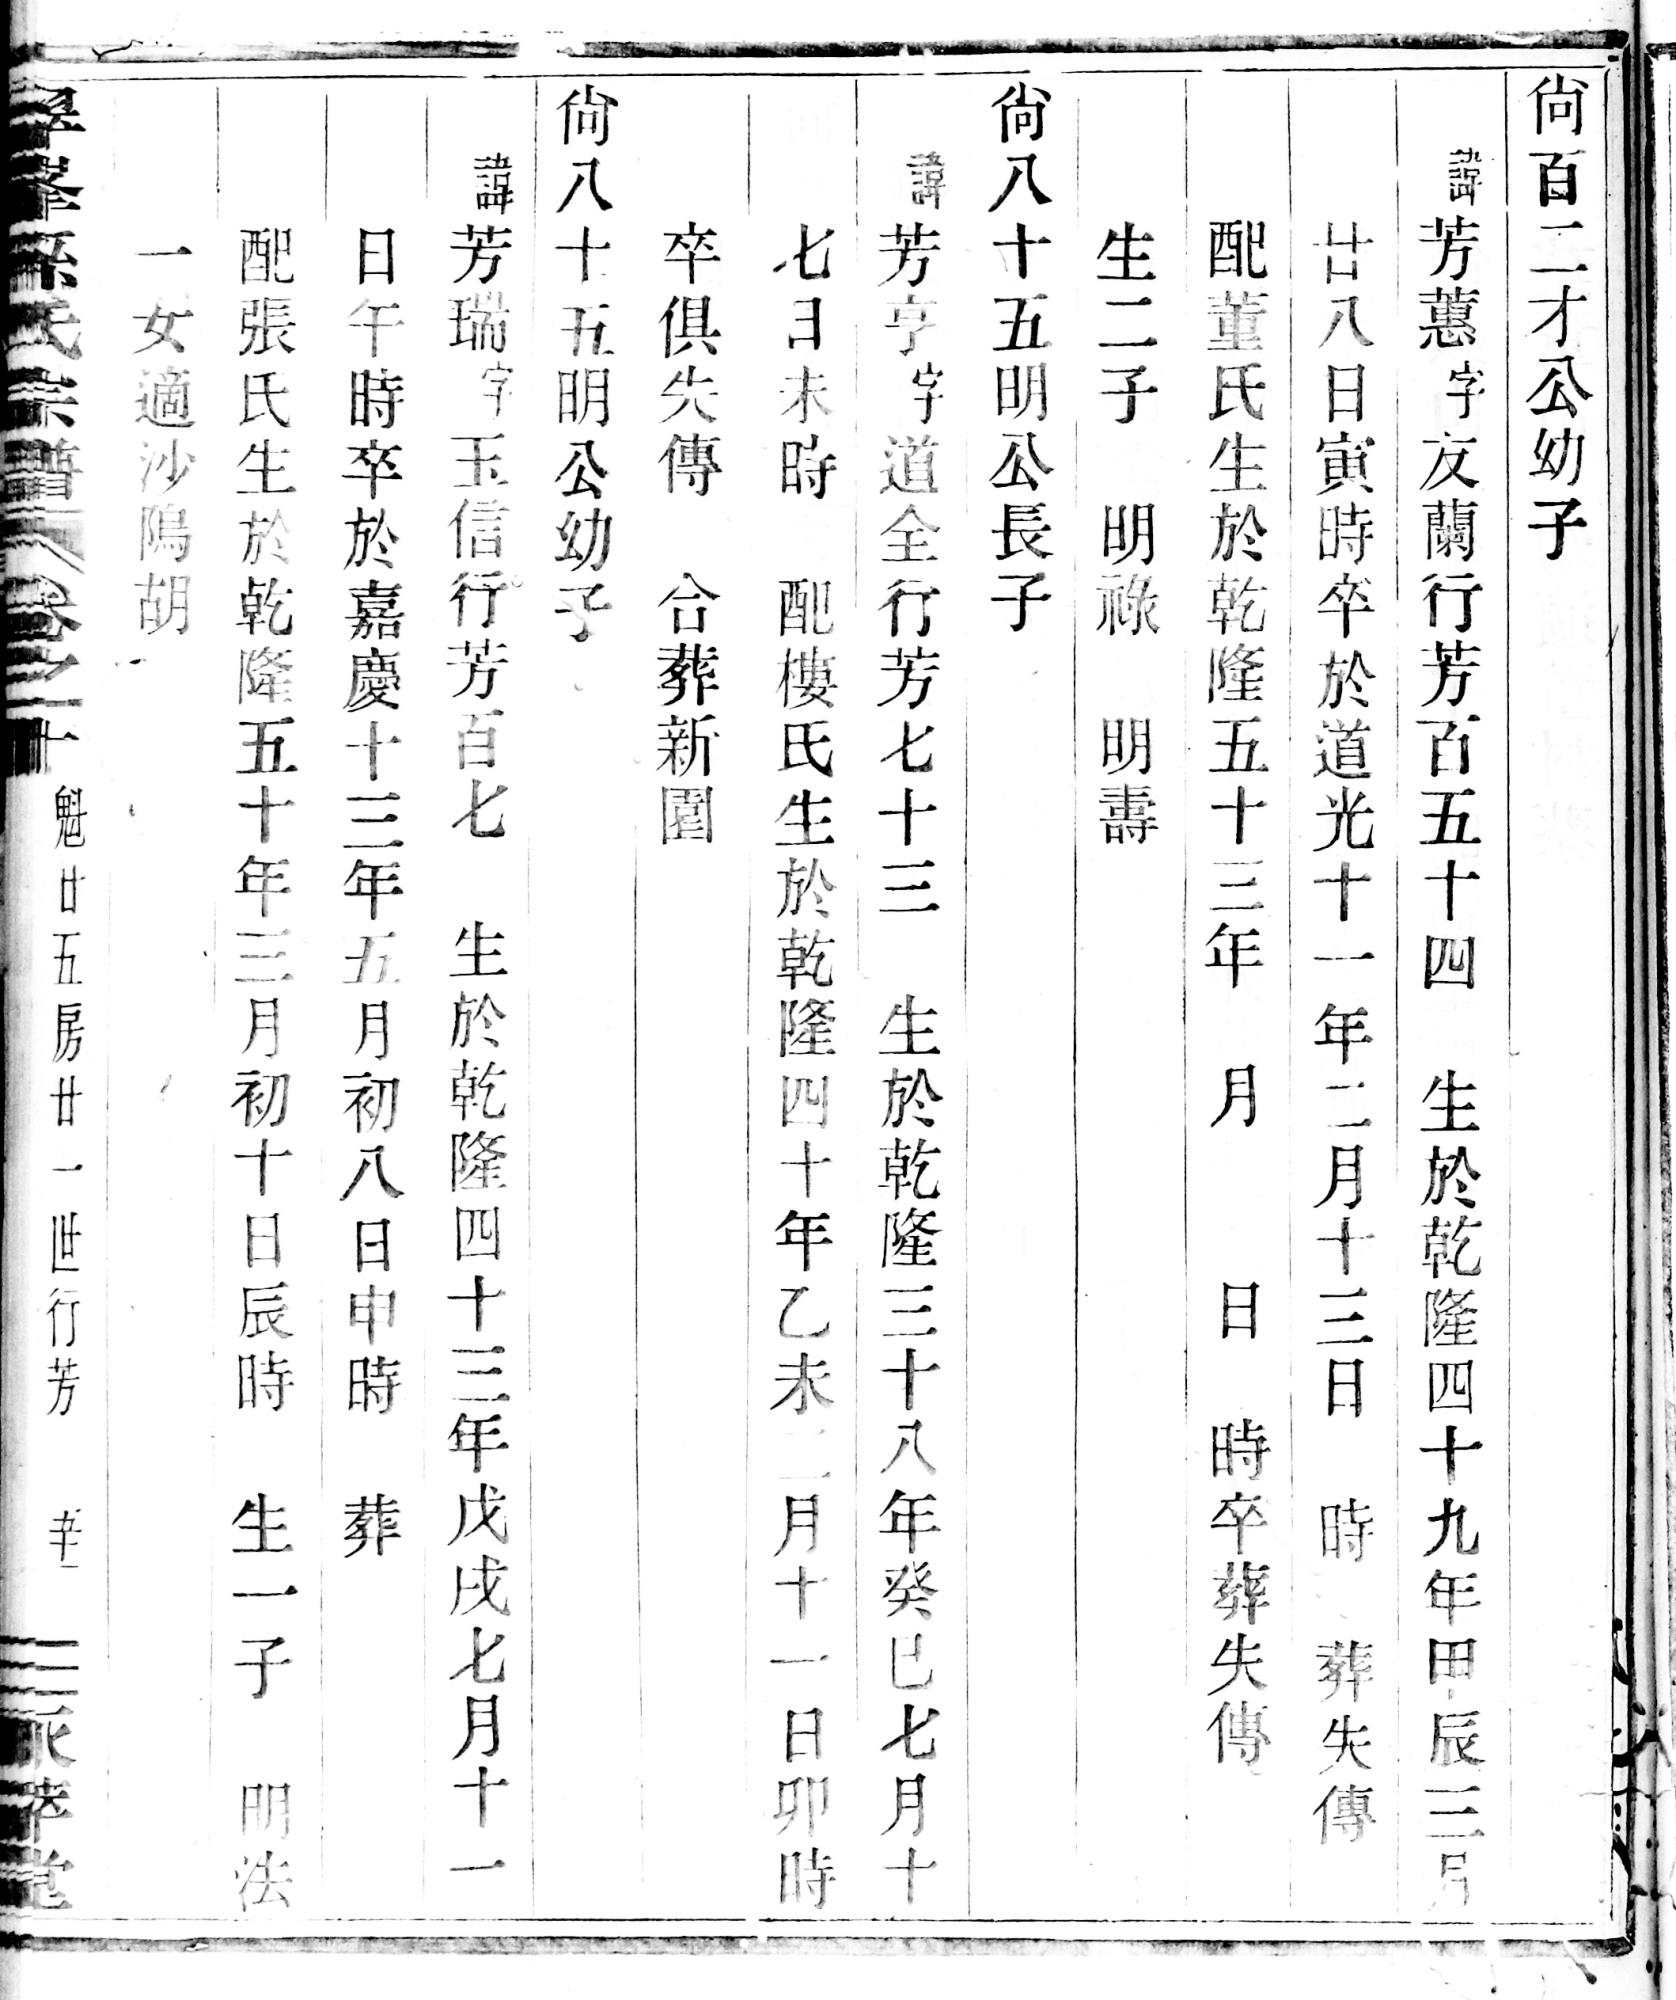 尙百二才公幼子
諱芳蕙字友蘭行芳百五十四　生於乾隆四十九年甲辰三月
廿八日寅時卒於道光十一年二月十三日　時　葬失傳
配董氏生於乾隆五十三年　月　　日　時卒葬失傳
生二子　明祿　　明壽
尙八十五明公長子
諱芳亨字道全行芳七十三　生於乾隆三十八年癸巳七月十
七日未時　配樓氏生於乾隆四十年乙未二月十一日卯時
卒俱失傳　合葬新園
尙八十五明公幼子
諱芳瑞字玉信行芳百七　生於乾隆四十三年戊戌七月十一
日午時卒於嘉慶十三年五月初八日申時　葬
配張氏生於乾隆五十年三月初十日辰時　生一子　明法
一女適沙隖胡
孫氏宗譜　卷之十　魁廿五房廿一世行芳　映萃堂